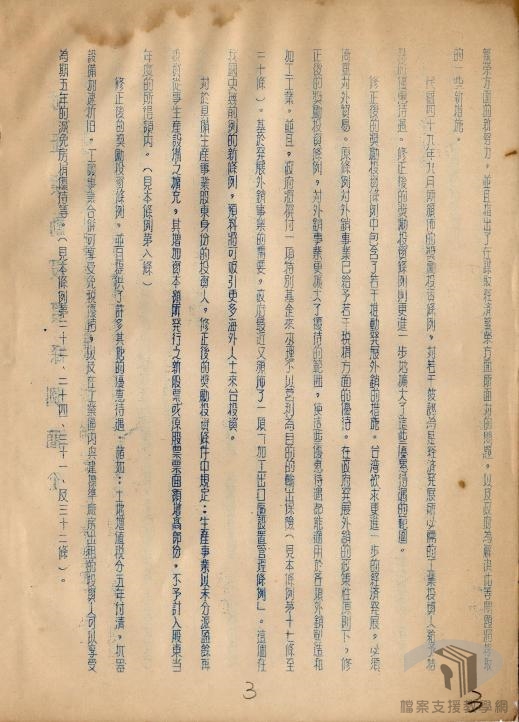 繁榮方面的新努力，並且指出了在謀取經濟繁榮方面所面對的問題，以及政府為解決此等問題將採取
的一些新措施。
民國四十九年九月所頒佈的獎勵投資條例，對若干被認為是經濟發展所必需的工業投資人給予特
殊的優惠待遇。修正後的獎勵投資條例則更進一步地擴大了這些優惠待遇的範圍。
修正後的獎勵投資條例中包含了若干推動發展外銷的措施。台灣欲求更進一步的經濟發展，必須
倚重對外貿易。原條例對外銷事業已給予若干稅捐方面的優待。在政府發展外銷的政策性原則下，修
正後的獎勵投資條例，對外銷事業更擴大了優待的範圍，使這些優惠待遇都能適用於各類外銷製造和
加工工業。並且，政府還撥付一項特別基金來辦理不以營利為目的的輸出保險（見本條例第十七條至
二十條）。基於發展外銷事業的需要，政府最近又頒佈了一項「加工出口區設置管理條例」。這個在
我國史無前例的新條例，預料將可吸引更多海外人士來台投資。
對於具備生產事業股東身份的投資人，修正後的獎勵投資條件中規定：生產事業以未分派盈餘再
投資從事生產設備之擴充，其增加資本額所發行之新股票或原股票票面額增高部份，不予計入股東當
年度的所得額內。（見本條例第八條）
修正後的獎勵投資條例，並且提供了許多其他的優惠待遇。諸如：土地增值稅分五年付清，機器
設備加速折旧，工礦事業合併可享受免稅優待，以及在工業區內興建標準廠房出租的投資人可以享受
為期五年的減免房捐優待等。（見本條例第二十一、二十四、三十一、及三十二條）。
3
3
檔案支援教學網